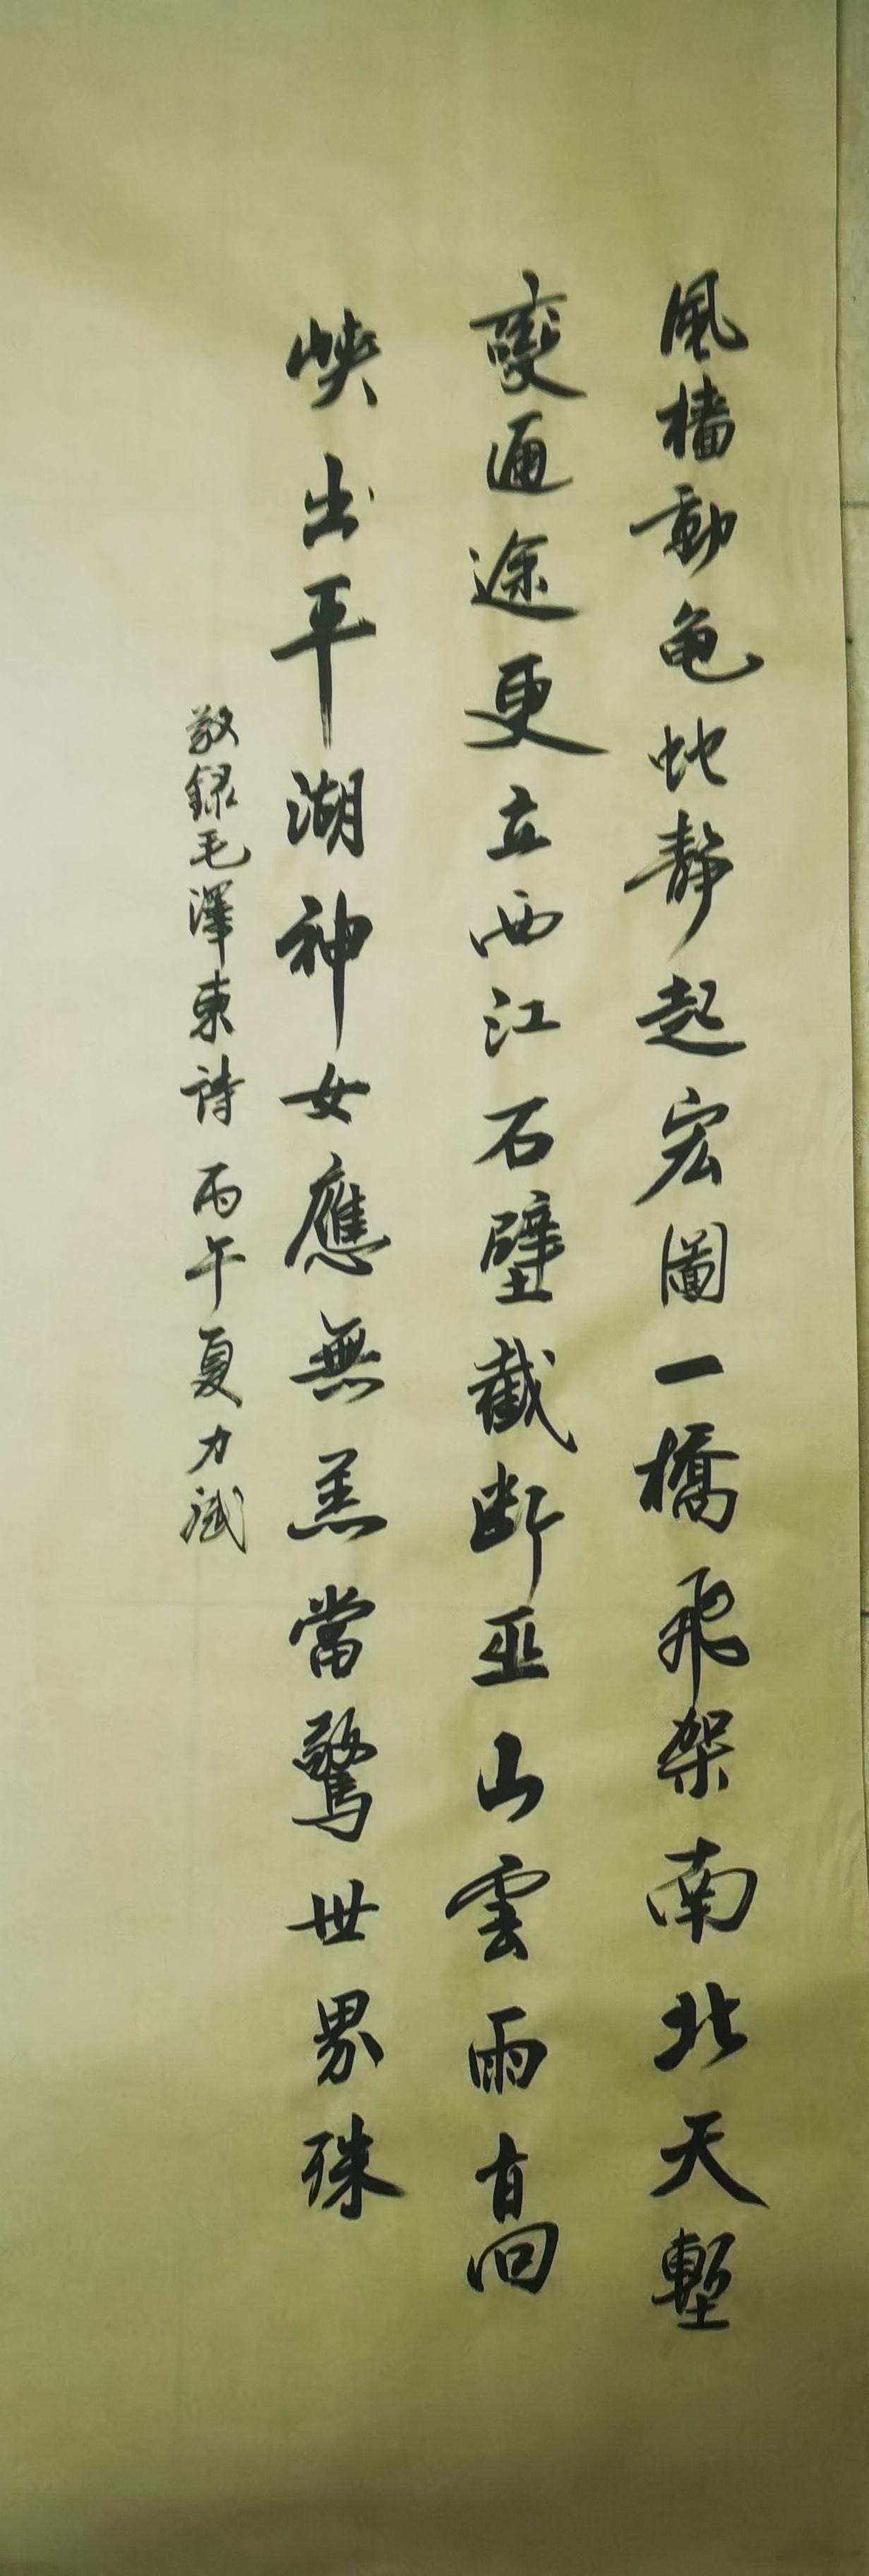 風檣動龜蛇靜起宏圖一橋飛架南北天塹
變通途更立西江石壁截斷巫山雲雨高
峽出平湖神女應無恙當驚世界殊
敬録毛澤東詩 丙午夏力斌